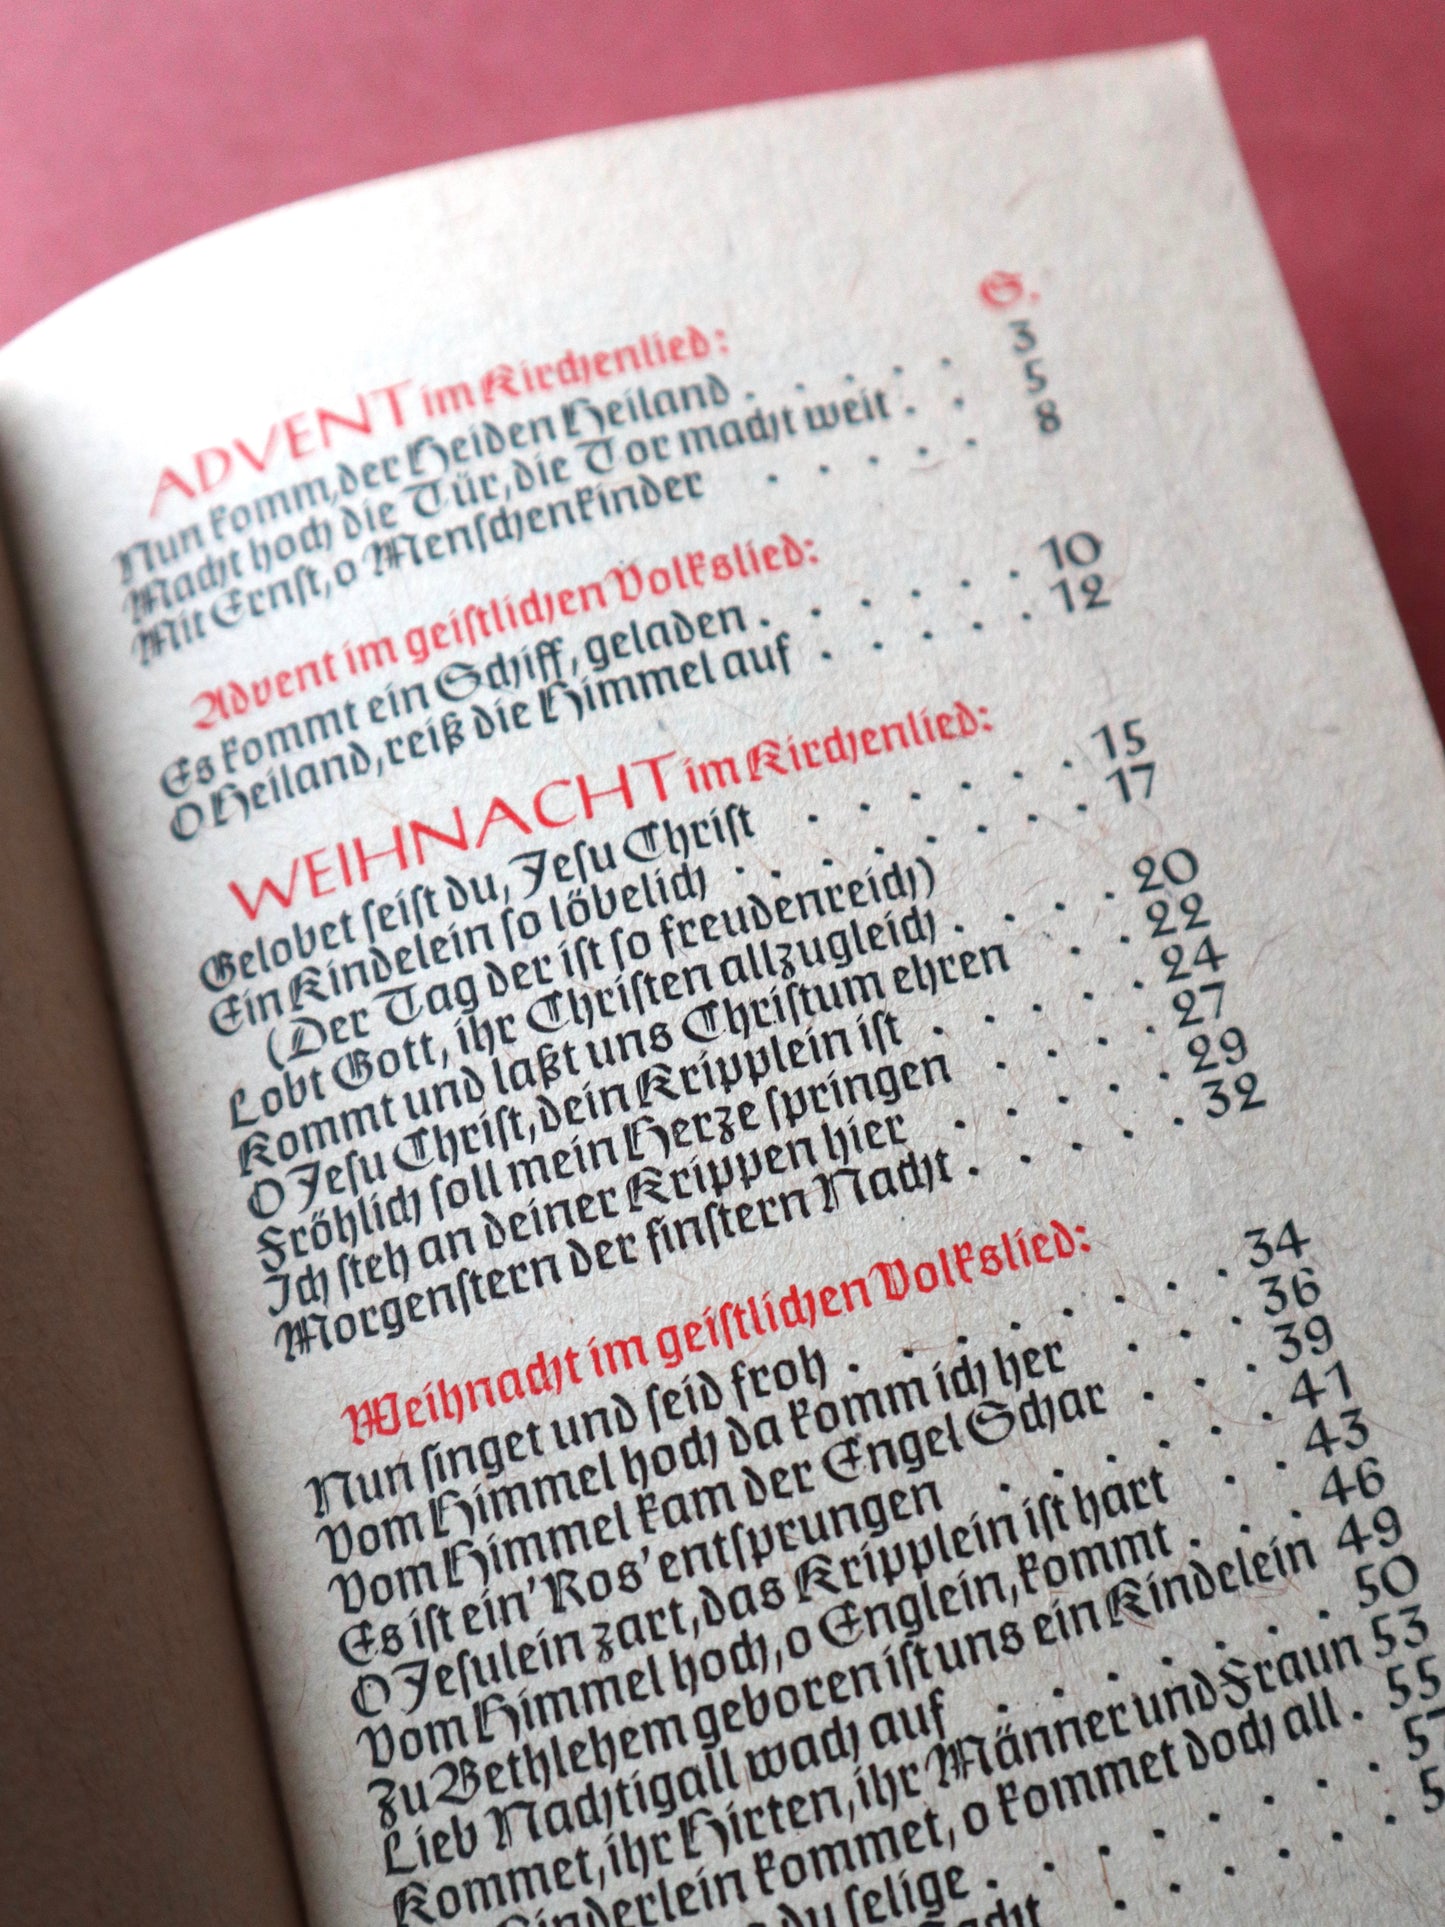 S.
ADVENT im Kirchenlied:
Nun komm, der Heiden Heiland . . . . . 3
Macht hoch die Tür, die Tor macht weit . . 5
Mit Ernst, o Menschenkinder . . . . . 8
Advent im geistlichen Volkslied:
Es kommt ein Schiff, geladen . . . . . . 10
O Heiland, reiß die Himmel auf . . . . . 12
WEIHNACHT im Kirchenlied:
Gelobet seist du, Jesu Christ . . . . . . 15
Ein Kindelein so löbelich . . . . . . . . 17
(Der Tag der ist so freudenreich)
Lobt Gott, ihr Christen allzugleich . . . . 20
Kommt und laßt uns Christum ehren . . 22
O Jesu Christ, dein Kripplein ist . . . . . 24
Fröhlich soll mein Herze springen . . . . 27
Ich steh an deiner Krippen hier . . . . . 29
Morgenstern der finstern Nacht . . . . . 32
Weihnacht im geistlichen Volkslied:
Nun singet und seid froh . . . . . . . . 34
Vom Himmel hoch da komm ich her . . . 36
Vom Himmel kam der Engel Schar . . . 39
Es ist ein' Ros' entsprungen . . . . . . 41
O Jesulein zart, das Kripplein ist hart . . 43
Vom Himmel hoch, o Englein, kommt . . . 46
Zu Bethlehem geboren ist uns ein Kindelein 49
Lieb Nachtigall wach auf . . . . . . . 50
Kommet, ihr Hirten, ihr Männer und Fraun 53
kommet, o kommet doch all . 55
du selige . . . . . . .